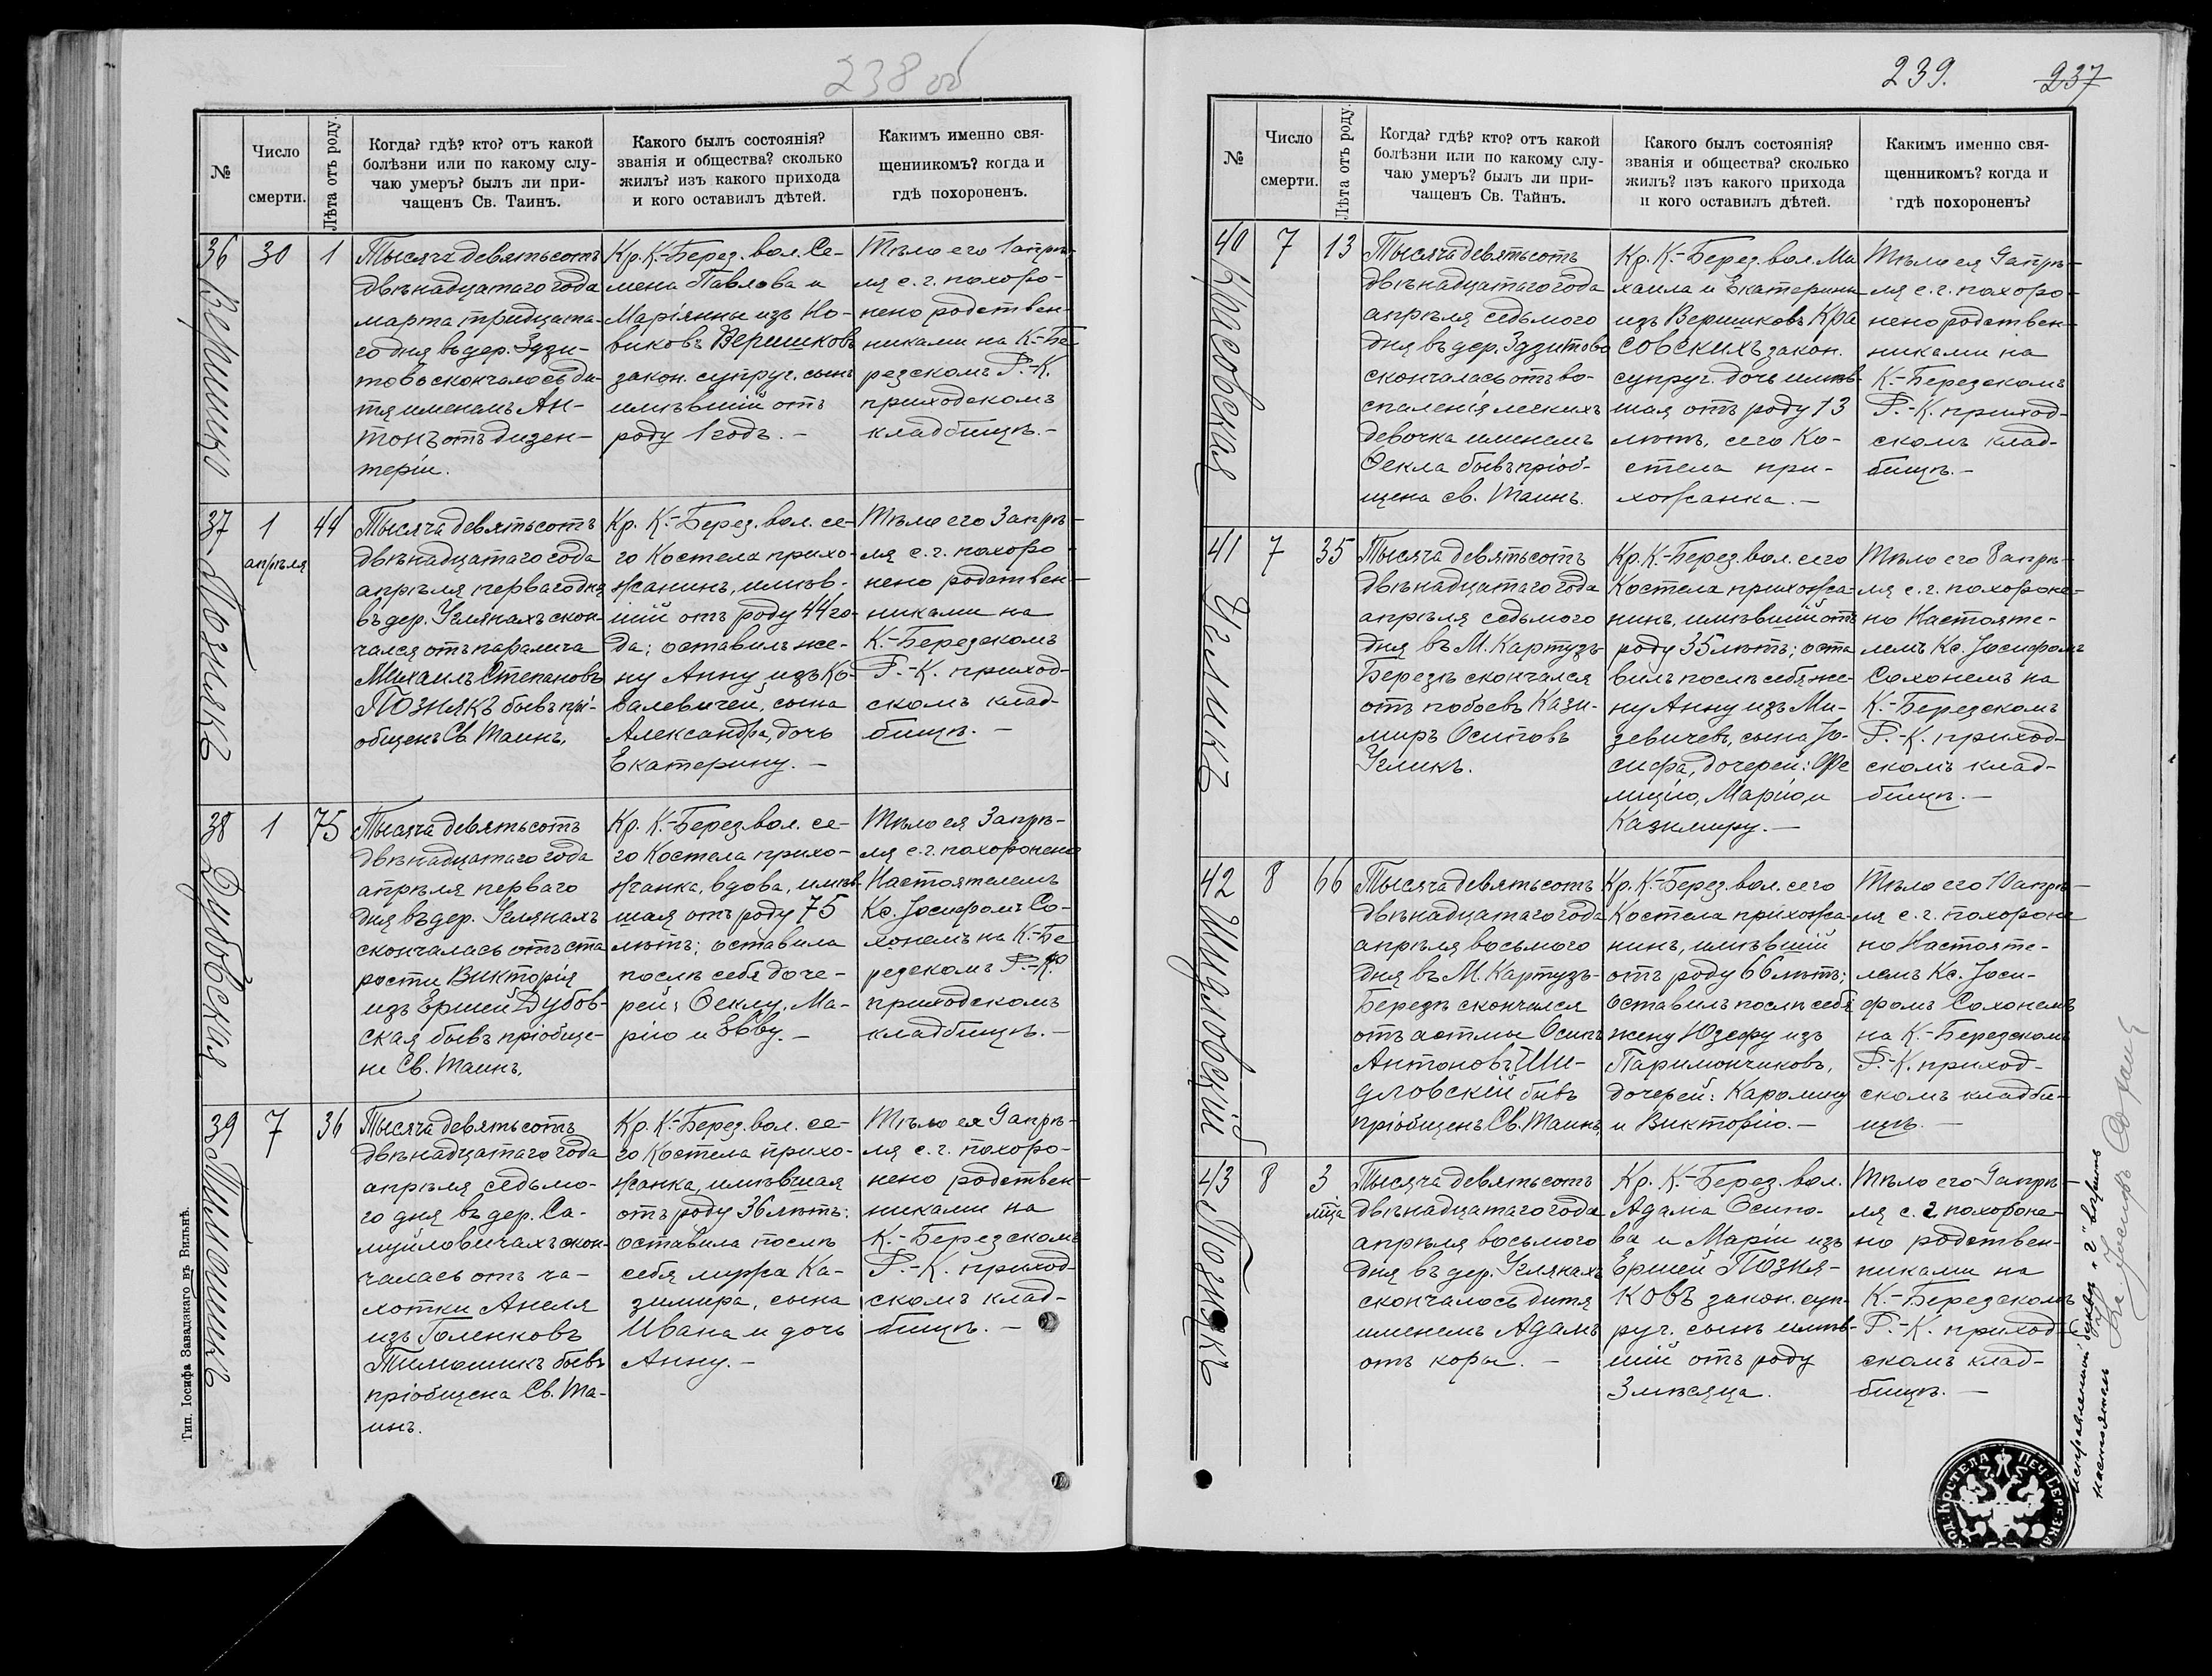 238 об
№
Число
смерти.
Лѣта отъ роду.
Когда? гдѣ? кто? отъ какой
болѣзни или по какому слу-
чаю умеръ? былъ ли при-
чащенъ Св. Таинъ.
Какого былъ состоянія?
званія и общества? сколько
жилъ? изъ какого прихода
и кого оставилъ дѣтей.
Какимъ именно свя-
щенникомъ? когда и
гдѣ похороненъ.
36
Веришко
30
1
Тысяча девятьсотъ
двѣнадцатаго года
марта тридцата-
го дня въ дер. Здзи-
тово скончалось ди-
тя именемъ Ан-
тонъ отъ дизен-
теріи.
Кр. К.-Берез. вол. Се-
мена Павлова и
Маріянны изъ Но-
виковъ Веришковъ
закон. супруг. сынъ
имѣвшій отъ
роду 1 годъ. –
Тѣло его 1 апрѣ-
ля с. г. похоро-
нено родствен-
никами на К.-Бе
резскомъ Р.-К.
приходскомъ
кладбищѣ. –
37
Познякъ
1
апрѣля
44
Тысяча девятьсотъ
двѣнадцатаго года
апрѣля перваго дня
въ дер. Углянахъ скон-
чался отъ паралича
Михаилъ Степановъ
Познякъ бывъ прі-
общенъ Св. Таинъ.
Кр. К.-Берез. вол. се-
го Костела прихо-
жанинъ, имѣв-
шій отъ роду 44 го-
да; оставилъ же-
ну Анну изъ Ко-
валевичей, сына
Александра, дочь
Екатерину. –
Тѣло его 3 апрѣ-
ля с. г. похоро-
нено родствен-
никами на
К.-Березскомъ
Р.-К. приход-
скомъ клад-
бищѣ. –
38
Дубовская
1
75
Тысяча девятьсотъ
двѣнадцатаго года
апрѣля перваго
дня въ дер. Углянахъ
скончалась отъ ста
рости Викторія
изъ Ершей Дубов-
ская бывъ пріобще-
на Св. Таинъ.
Кр. К.-Берез. вол. се-
го Костела прихо-
жанка, вдова, имѣв-
шая отъ роду 75
лѣтъ; оставила
послѣ себя доче-
рей: Феклу, Ма-
рію и Евву. –
Тѣло ея 3 апрѣ-
ля с. г. похоронено
Настоятелемъ
Кс. Іосифомъ Со-
хонемъ на К.-Бе
резскомъ Р.-К.
приходскомъ
кладбищѣ. –
39
Тимошикъ
7
36
Тысяча девятьсотъ
двѣнадцатаго года
апрѣля седьмо-
го дня въ дер. Са-
муйловичахъ скон-
чалась отъ ча-
хотки Анеля
изъ Голенковъ
Тимошикъ бывъ
пріобщена Св. Та-
инъ.
Кр. К.-Берез. вол. се-
го Костела прихо-
жанка, имѣвшая
отъ роду 36 лѣтъ;
оставила послѣ
себя мужа Ка-
зимира, сына
Ивана и дочь
Анну. –
Тѣло ея 9 апрѣ-
ля с. г. похоро-
нено родствен-
никами на
К.-Березскомъ
Р.-К. приход-
скомъ клад-
бищѣ. –
Тип. Іосифа Завадзкаго въ Вильнѣ.
239.
237
№
Число
смерти.
Лѣта отъ роду.
Когда? гдѣ? кто? отъ какой
болѣзни или по какому слу-
чаю умеръ? былъ ли при-
чащенъ Св. Тайнъ.
Какого былъ состоянія?
званія и общества? сколько
жилъ? изъ какого прихода
и кого оставилъ дѣтей.
Какимъ именно свя-
щенникомъ? когда и
гдѣ похороненъ?
40
Красовская
7
13
Тысяча девятьсотъ
двѣнадцатаго года
апрѣля седьмого
дня въ дер. Здзитово
скончалась отъ во-
спаленія легкихъ
девочка именемъ
Фекла бывъ пріоб-
щена св. Таинъ.
Кр. К.-Берез. вол. Ми
хаила и Екатерины
изъ Веришковъ Кра
совскихъ закон.
супруг. дочь имѣв-
шая отъ роду 13
лѣтъ, сего Ко-
стела при-
хожанка. –
Тѣло ея 9 апрѣ-
ля с. г. похоро-
нено родствен-
никами на
К.-Березскомъ
Р.-К. приход-
скомъ клад-
бищѣ. –
41
Угликъ
7
35
Тысяча девятьсотъ
двѣнадцатаго года
апрѣля седьмого
дня въ М. Картузъ-
Березѣ скончался
отъ побоевъ Кази-
миръ Осиповъ
Угликъ.
Кр. К.-Берез. вол. сего
Костела прихожа-
нинъ, имѣвшій отъ
роду 35 лѣтъ; оста
вилъ послѣ себя же-
ну Анну изъ Ми-
зевичевъ, сына Іо-
сифа, дочерей: Фе
лицію, Марію и
Казимиру. –
Тѣло его 8 апрѣ-
ля с. г. похороне-
но Настояте-
лемъ Кс. Іосифомъ
Сохонемъ на
К.-Березскомъ
Р.-К. приход-
скомъ клад-
бищѣ. –
42
Шидловскій
8
66
Тысяча девятьсотъ
двѣнадцатаго года
апрѣля восьмого
дня въ М. Картузъ-
Березѣ скончался
отъ астмы Осипъ
Антоновъ Ши-
дловскій бывъ
пріобщенъ Св. Таинъ.
Кр. К.-Берез. вол. сего
Костела прихожа-
нинъ, имѣвшій
отъ роду 66 лѣтъ;
оставилъ послѣ себя
жену Юзефу изъ
Паримончиковъ,
дочерей: Каролину
и Викторію. –
Тѣло его 10 апрѣ-
ля с. г. похороне
но Настояте-
лемъ Кс. Іоси-
фомъ Сохонемъ
на К.-Березскомъ
Р.-К. приход-
скомъ кладби-
щѣ. –
43
Познякъ
8
3
мѣца
Тысяча девятьсотъ
двѣнадцатаго года
апрѣля восьмого
дня въ дер. Углянахъ
скончалось дитя
именемъ Адамъ
отъ кори. –
Кр. К.-Берез. вол.
Адама Осипо-
ва и Маріи изъ
Ершей Позня-
ковъ закон. суп-
руг. сынъ имѣв-
шій отъ роду
3 мѣсяца.
Тѣло его 9 апрѣ-
ля с. г. похороне-
но родствен-
никами на
К.-Березскомъ
Р.-К. приход-
скомъ клад-
бищѣ. –
исправленной букву „г" вѣрить
настоятель Кс Іосифъ Сохонь